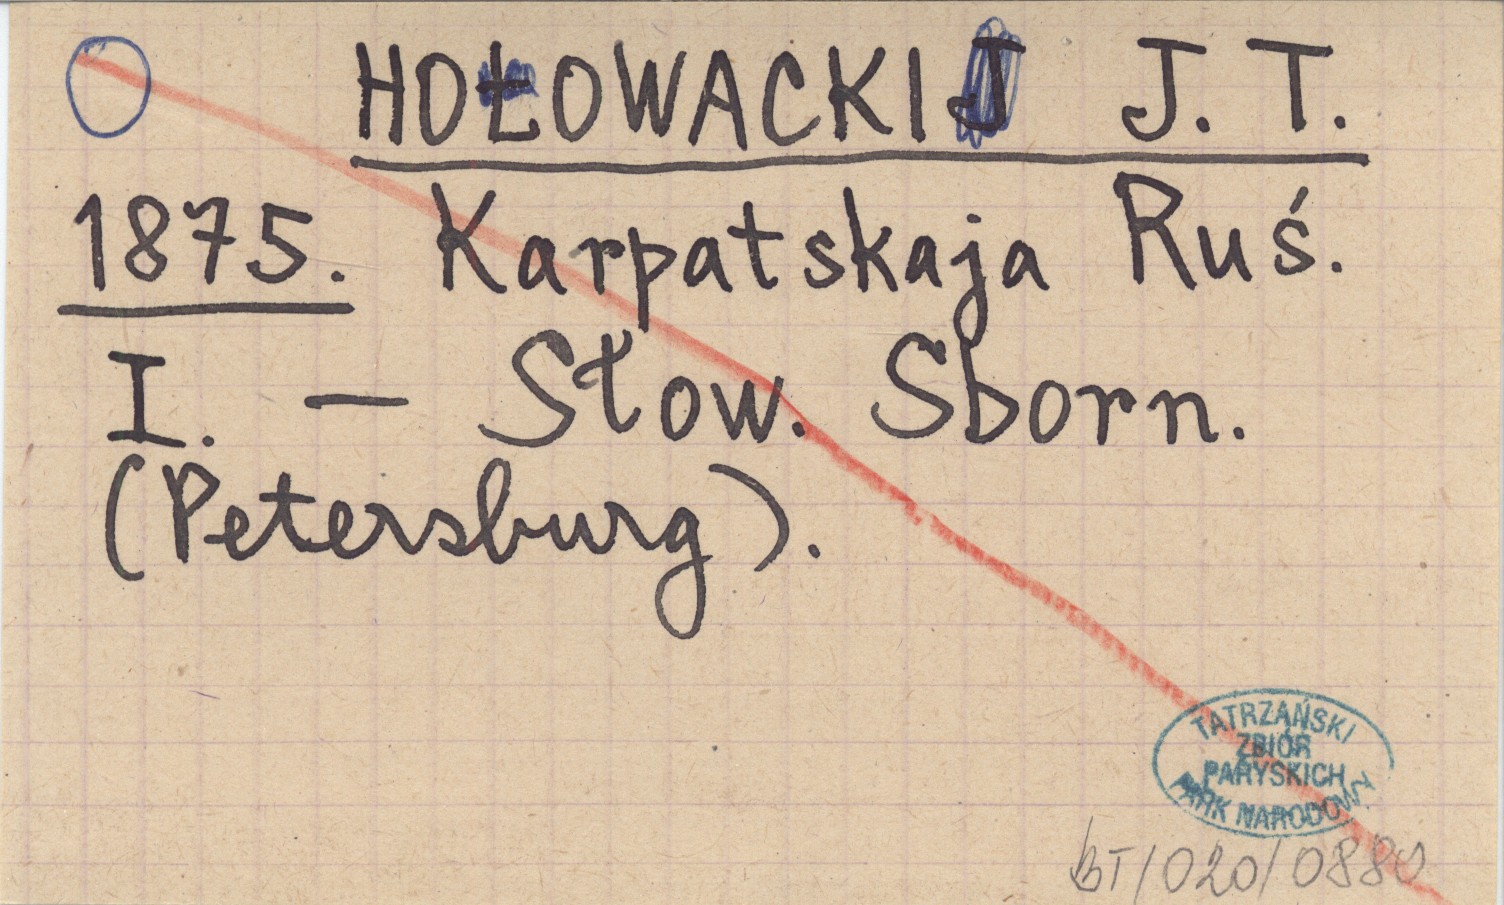 HOŁOWACKIJ J. T.
1875. Karpatskaja Ruś.
I. — Słow. Sborn.
(Petersburg).
TATRZAŃSKI
ZBIÓR
PARYSKICH
PARK NARODOWY
BT/020/0880